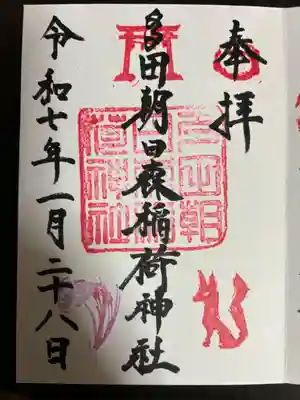 奉拝
多田朝日森稲荷神社
令和七年一月二十八日